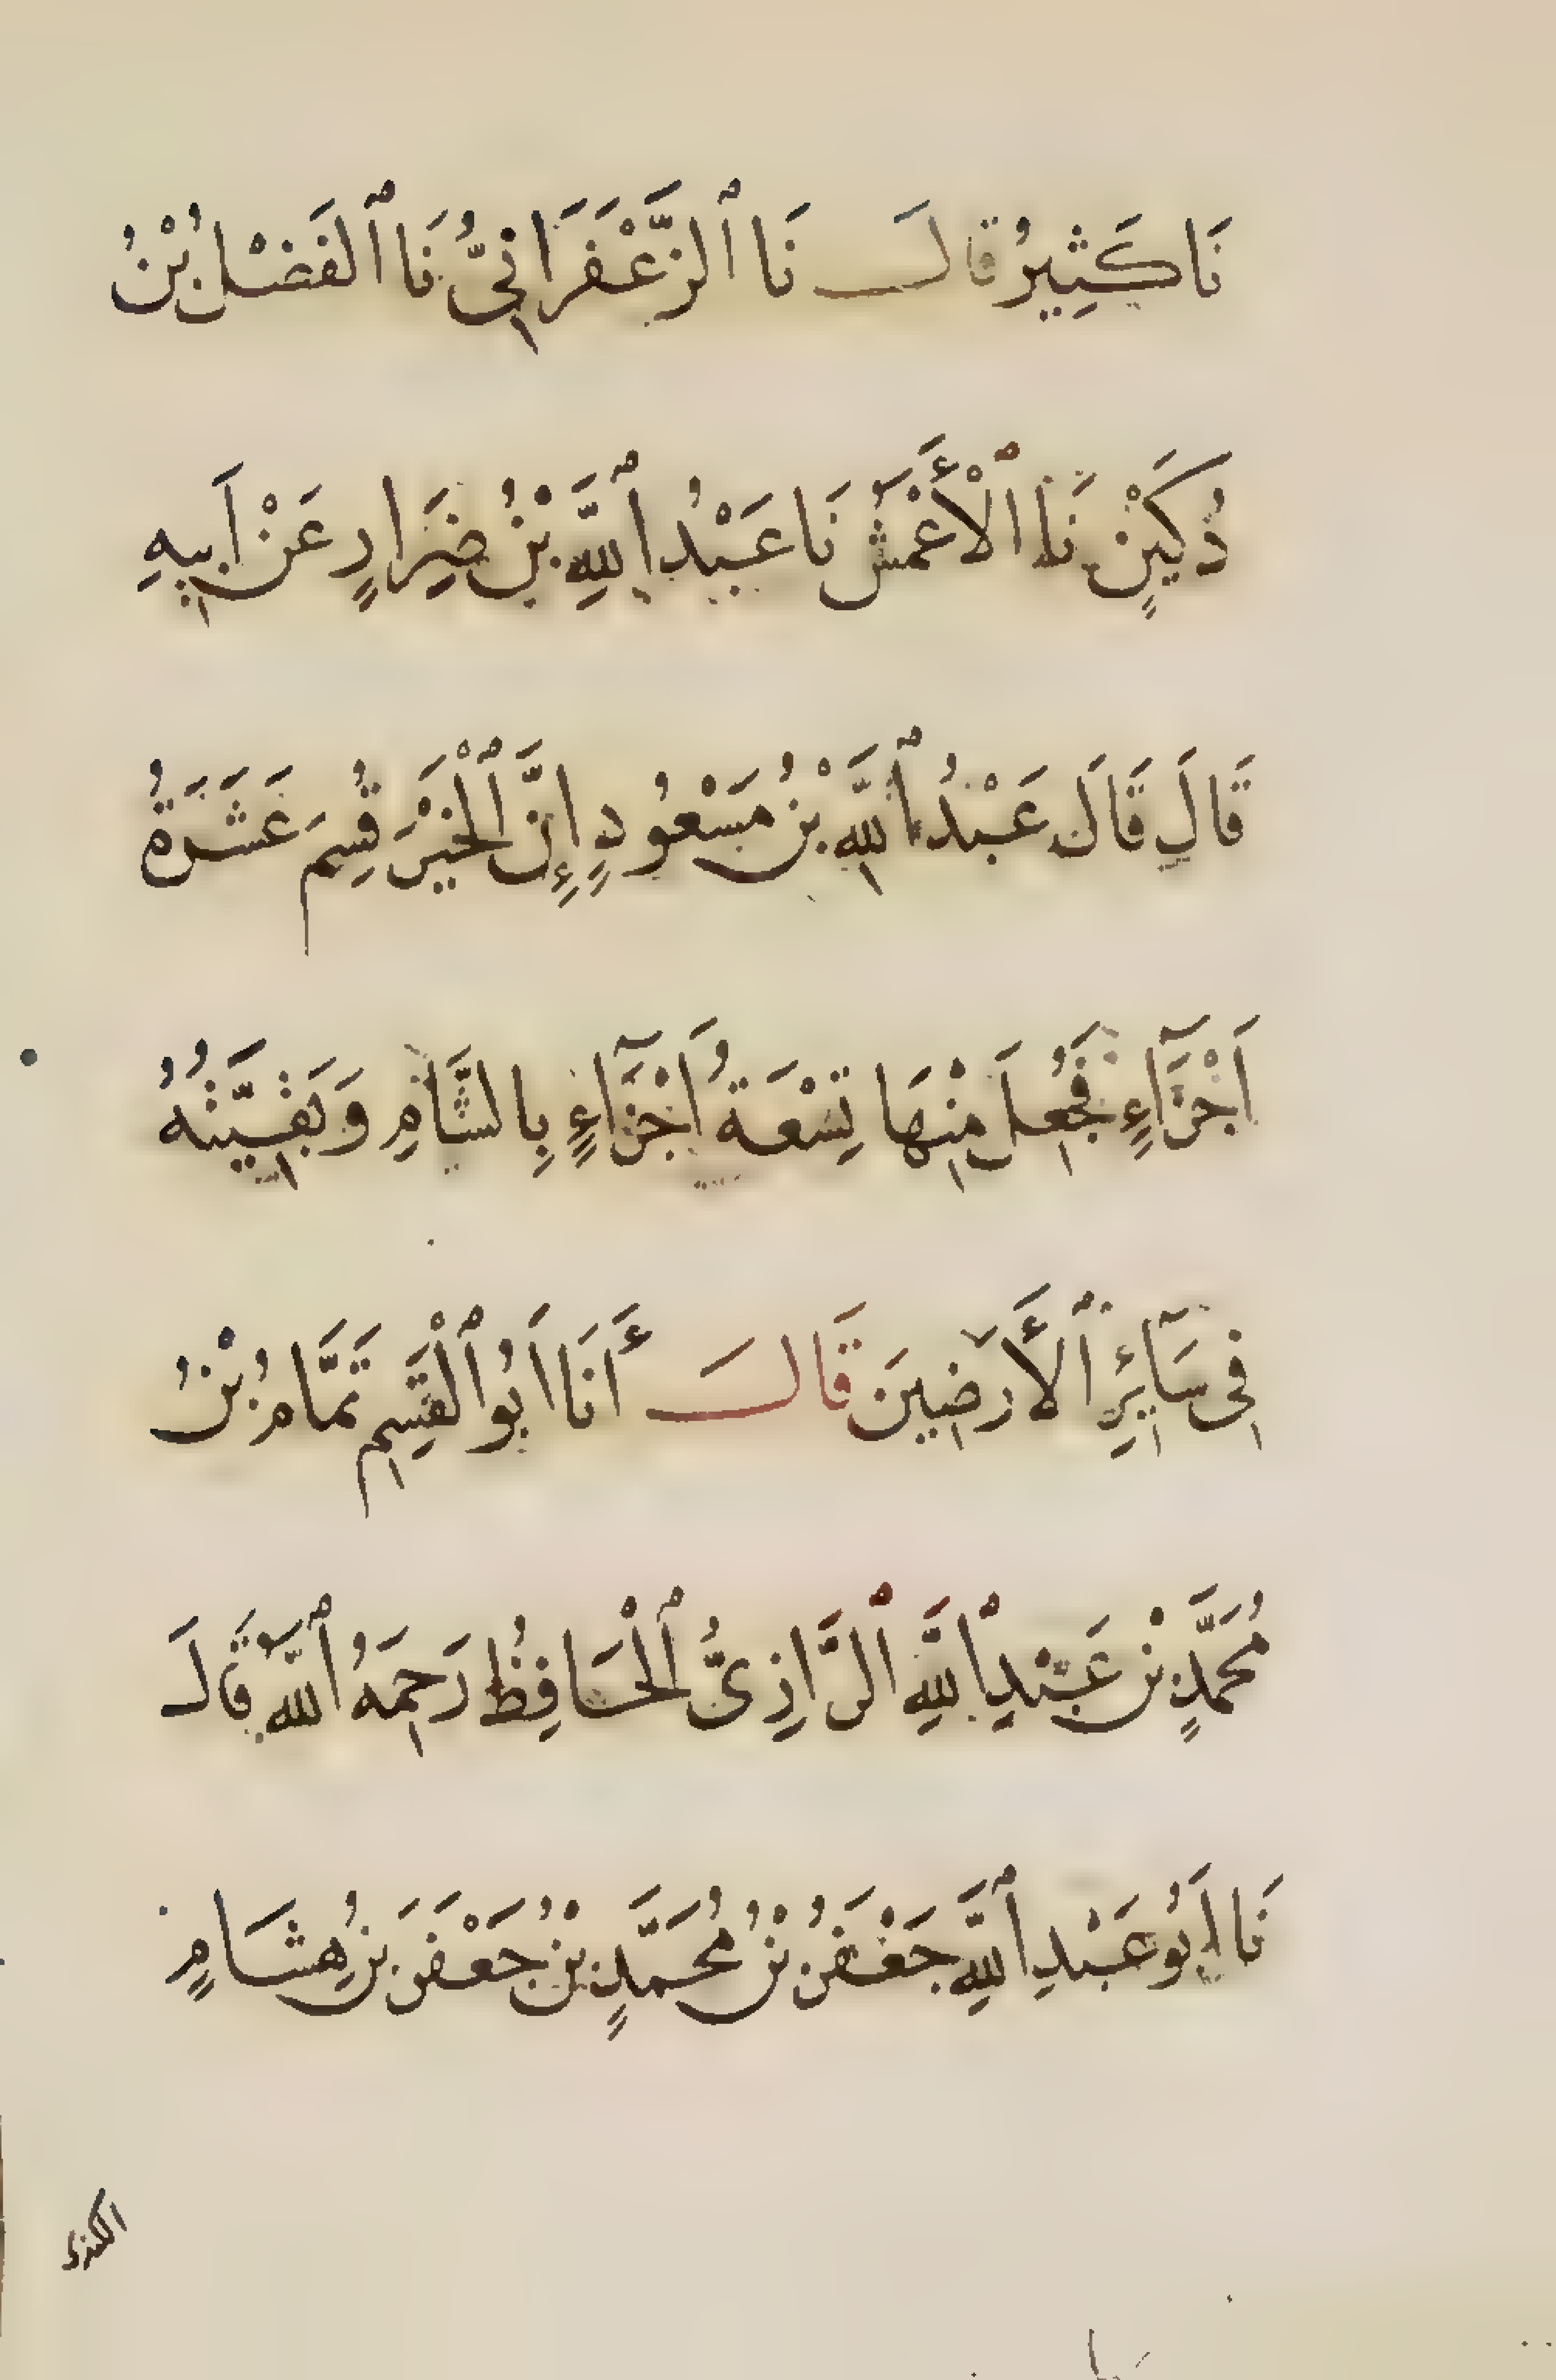 نَا كَثِيرُ قَالَ نَا ٱلزَّعْفَرَانِىُّ نَا ٱلفَضْلُ بْنُ
دُكَيْنٍ نَا ٱلْأَعْمَشُ نَا عَبْدُ ٱللَّهِ بْنُ ضِرَارٍ عَنْ اَبِيهِ
قَالَ قَالَ عَبْدُ ٱللَّهِ بْنُ مَسْعُودٍ إِنَّ ٱلْخَيْرَ قُسِمَ عَشَرَةُ
اَجْزَآءٍ فَجُعِلَ مِنْهَا تِسْعَةُ اَجْزَآءٍ بِالشَّامِ وَبَقِيَّتُهُ
فِى سَآئِرِ ٱلأَرَضِينَ قَالَ أَنَا اَبُو ٱلْقَسِمِ تَمَّامُ بْنُ
مُحَمَّدِ بْنِ عَبْدِ ٱللَّهِ ٱلرَّازِىُّ ٱلْحَافِظُ رَحِمَهُ ٱللَّهُ قَالَ
نَا اَبُو عَبْدِ ٱللَّهِ جَعْفَرُ بْنُ مُحَمَّدِ بْنِ جَعْفَرَ بْنِ هِشَامٍ
الكندى